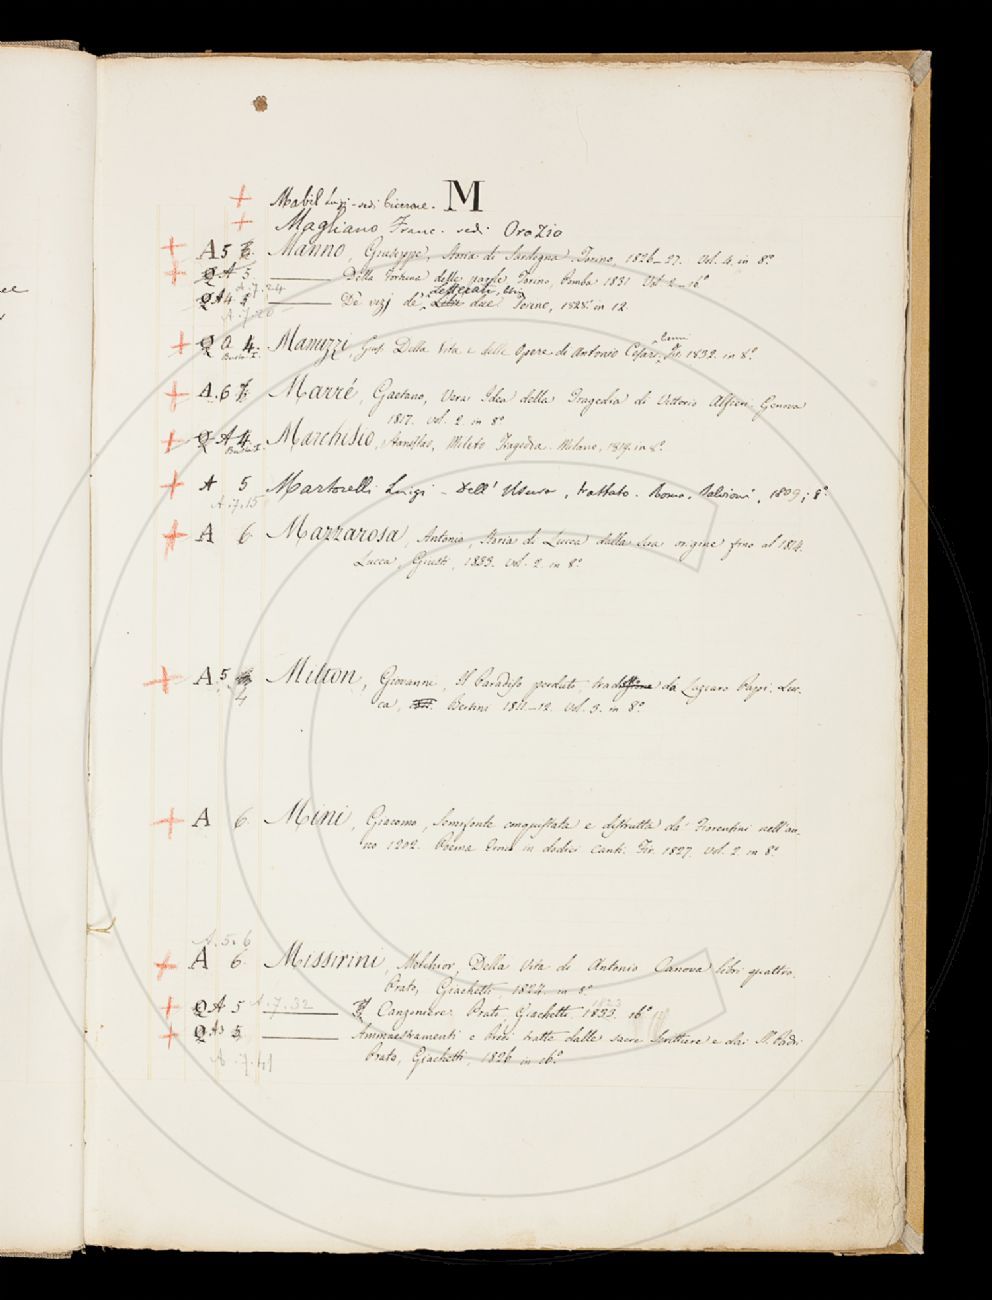 M
Mabil Luigi - vedi Cicerone.
Magliano Franc. vedi Orazio
A 5 Manno, Giuseppe, Storia di Sardegna Torino, 1826-27. Vol. 4. in 8.º
Q A 5. Della Fortuna delle parole Torino, Pomba 1831 Vol. 2 - 16º
A.7.24
letterati, libri
Q A 4 De' vizj de' due. Torino, 1828. in 12.
A.7.20
Q a 4. Manuzzi, Gius. Della Vita e delle Opere di Antonio Cesari, Fir. 1832. in 8.º
Busta I.
A. 6 Marré, Gaetano, Vera Idea della Tragedia di Vittorio Alfieri. Genova
1817. Vol. 2. in 8º
Q A 4. Marchisio, Stanislao, Mileto Tragedia. Milano, 1819. in 8º.
Busta I.
A 5 Martorelli Luigi - Dell' Usura, trattato. Roma. Salvioni, 1809; 8º.
A.7.15
A 6. Mazzarosa, Antonio, Storia di Lucca dalla sua origine fino al 1814.
Lucca, Giusti, 1833. Vol. 2. in 8.º
A. 5 Milton, Giovanni, Il Paradiso perduto, trad. da Lazzaro Papi. Luc-
4
ca, Bertini 1811-12. Vol. 3. in 8.º
A 6. Mini, Giacomo, Semifonte conquistata e distrutta da' Fiorentini nell'an-
no 1202. Poema Eroico in dodici canti. Fir. 1827. Vol. 2. in 8.º
A.5.6
A 6. Missirini, Melchior, Della Vita di Antonio Canova libri quattro.
Prato, Giachetti, 1824. in 8.º
Q A 5 A.7.32 Canzoniere. Prato, Giachetti 1833. 16º
1823
Q A 5 Ammaestramenti e Preci tratte dalle sacre Scritture e dai SS. Padri
A.7.41
Prato, Giachetti, 1826 in 16.º